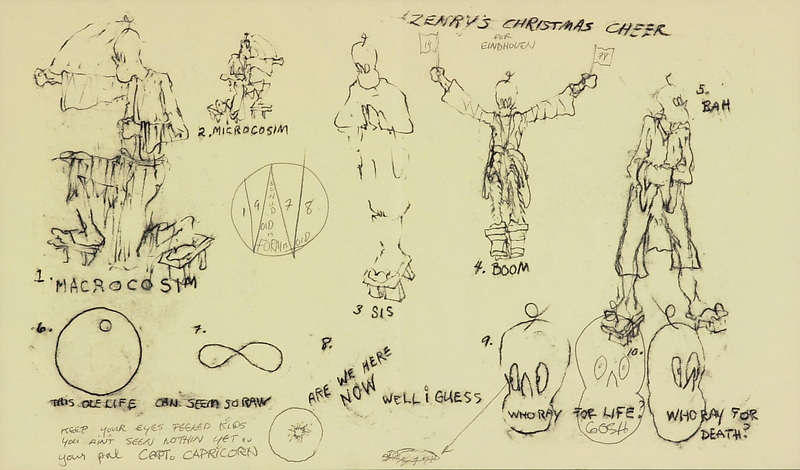 ZENRY'S CHRISTMAS CHEER
EINDHOVEN
19
78
5.
BAH
2. MICROCOSIM
1 9 7 8
OLD
1. MACROCOSIM
3 SIS
4. BOOM
6.
7.
8.
9.
10.
THIS OLE LIFE CAN SEEM SO RAW
ARE WE HERE
NOW
WELL i GUESS
WHORAY FOR LIFE?
GOSH
WHORAY FOR
DEATH?
KEEP YOUR EYES PEELED KIDS
YOU AIN'T SEEN NOTHIN YET
your pal CAPT. CAPRICORN